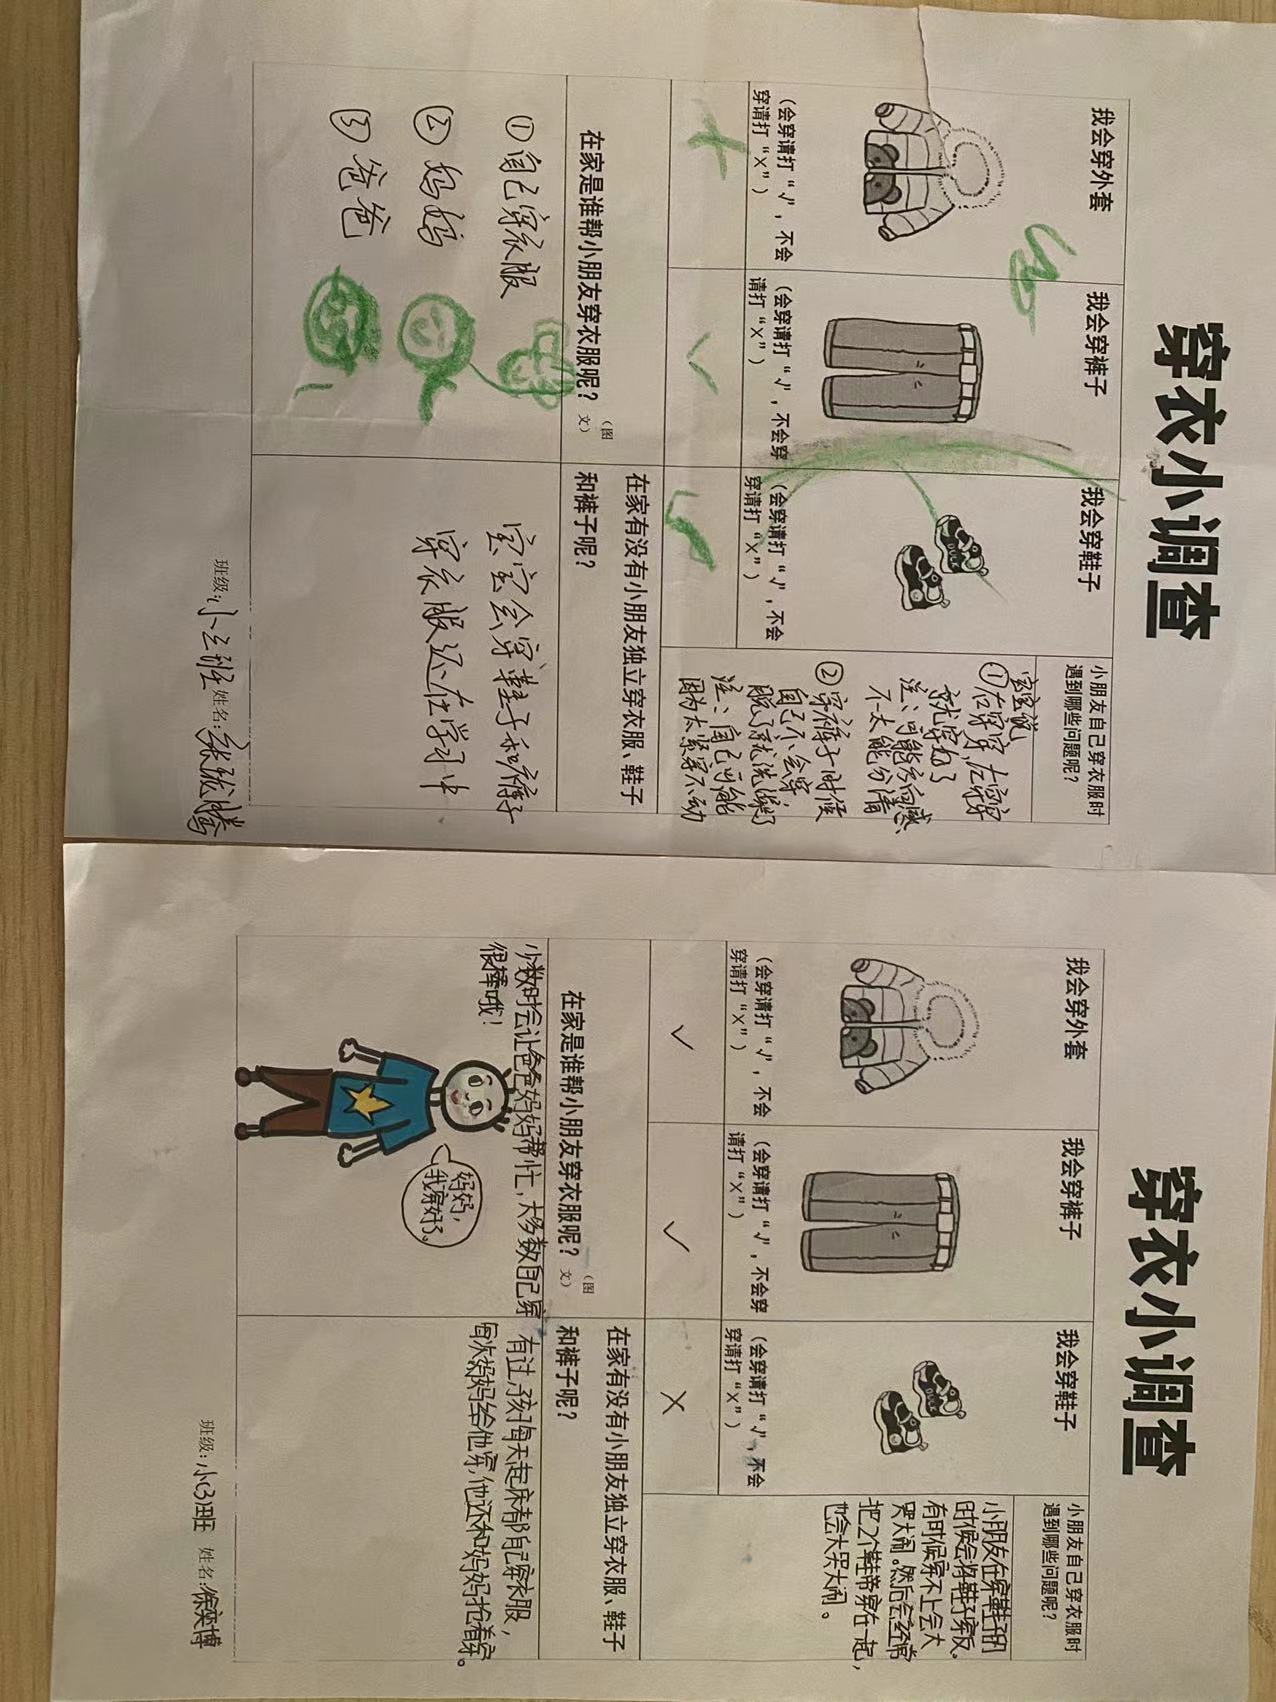 穿衣小调查
我会穿外套
我会穿裤子
我会穿鞋子
小朋友自己穿衣服时
遇到哪些问题呢？
（会穿请打“√”，不会
穿请打“×”）
（会穿请打“√”，不会穿
请打“×”）
（会穿请打“√”，不会
穿请打“×”）
×
√
√
宝宝说
①右穿穿，左穿穿
就穿好了
注：可能方向感
不太能分清
②穿裤子时候
自己不会穿，
脱了就洗澡了
注：自己可能
因为太紧穿不动
在家是谁帮小朋友穿衣服呢？（图
文）
①自己穿衣服
②妈妈
③爸爸
在家有没有小朋友独立穿衣服、鞋子
和裤子呢？
宝宝会穿鞋子和裤子
穿衣服还在学习中
班级：小三班 姓名：
穿衣小调查
我会穿外套
我会穿裤子
我会穿鞋子
小朋友自己穿衣服时
遇到哪些问题呢？
（会穿请打“√”，不会
穿请打“×”）
（会穿请打“√”，不会穿
请打“×”）
（会穿请打“√”，不会
穿请打“×”）
√
√
×
小朋友在穿鞋子的
时候会将鞋子穿反。
有时候穿不上会大
哭大闹。然后会经常
把2个鞋带穿在一起，
也会大哭大闹。
在家是谁帮小朋友穿衣服呢？（图
文）
少数时会让爸爸妈妈帮忙，大多数自己穿
很棒哦！
妈妈，
我穿好了。
在家有没有小朋友独立穿衣服、鞋子
和裤子呢？
有让，孩子每天起床都自己穿衣服，
每次妈妈给他穿，他还和妈妈抢着穿。
班级：小(3)班 姓名：徐奕博